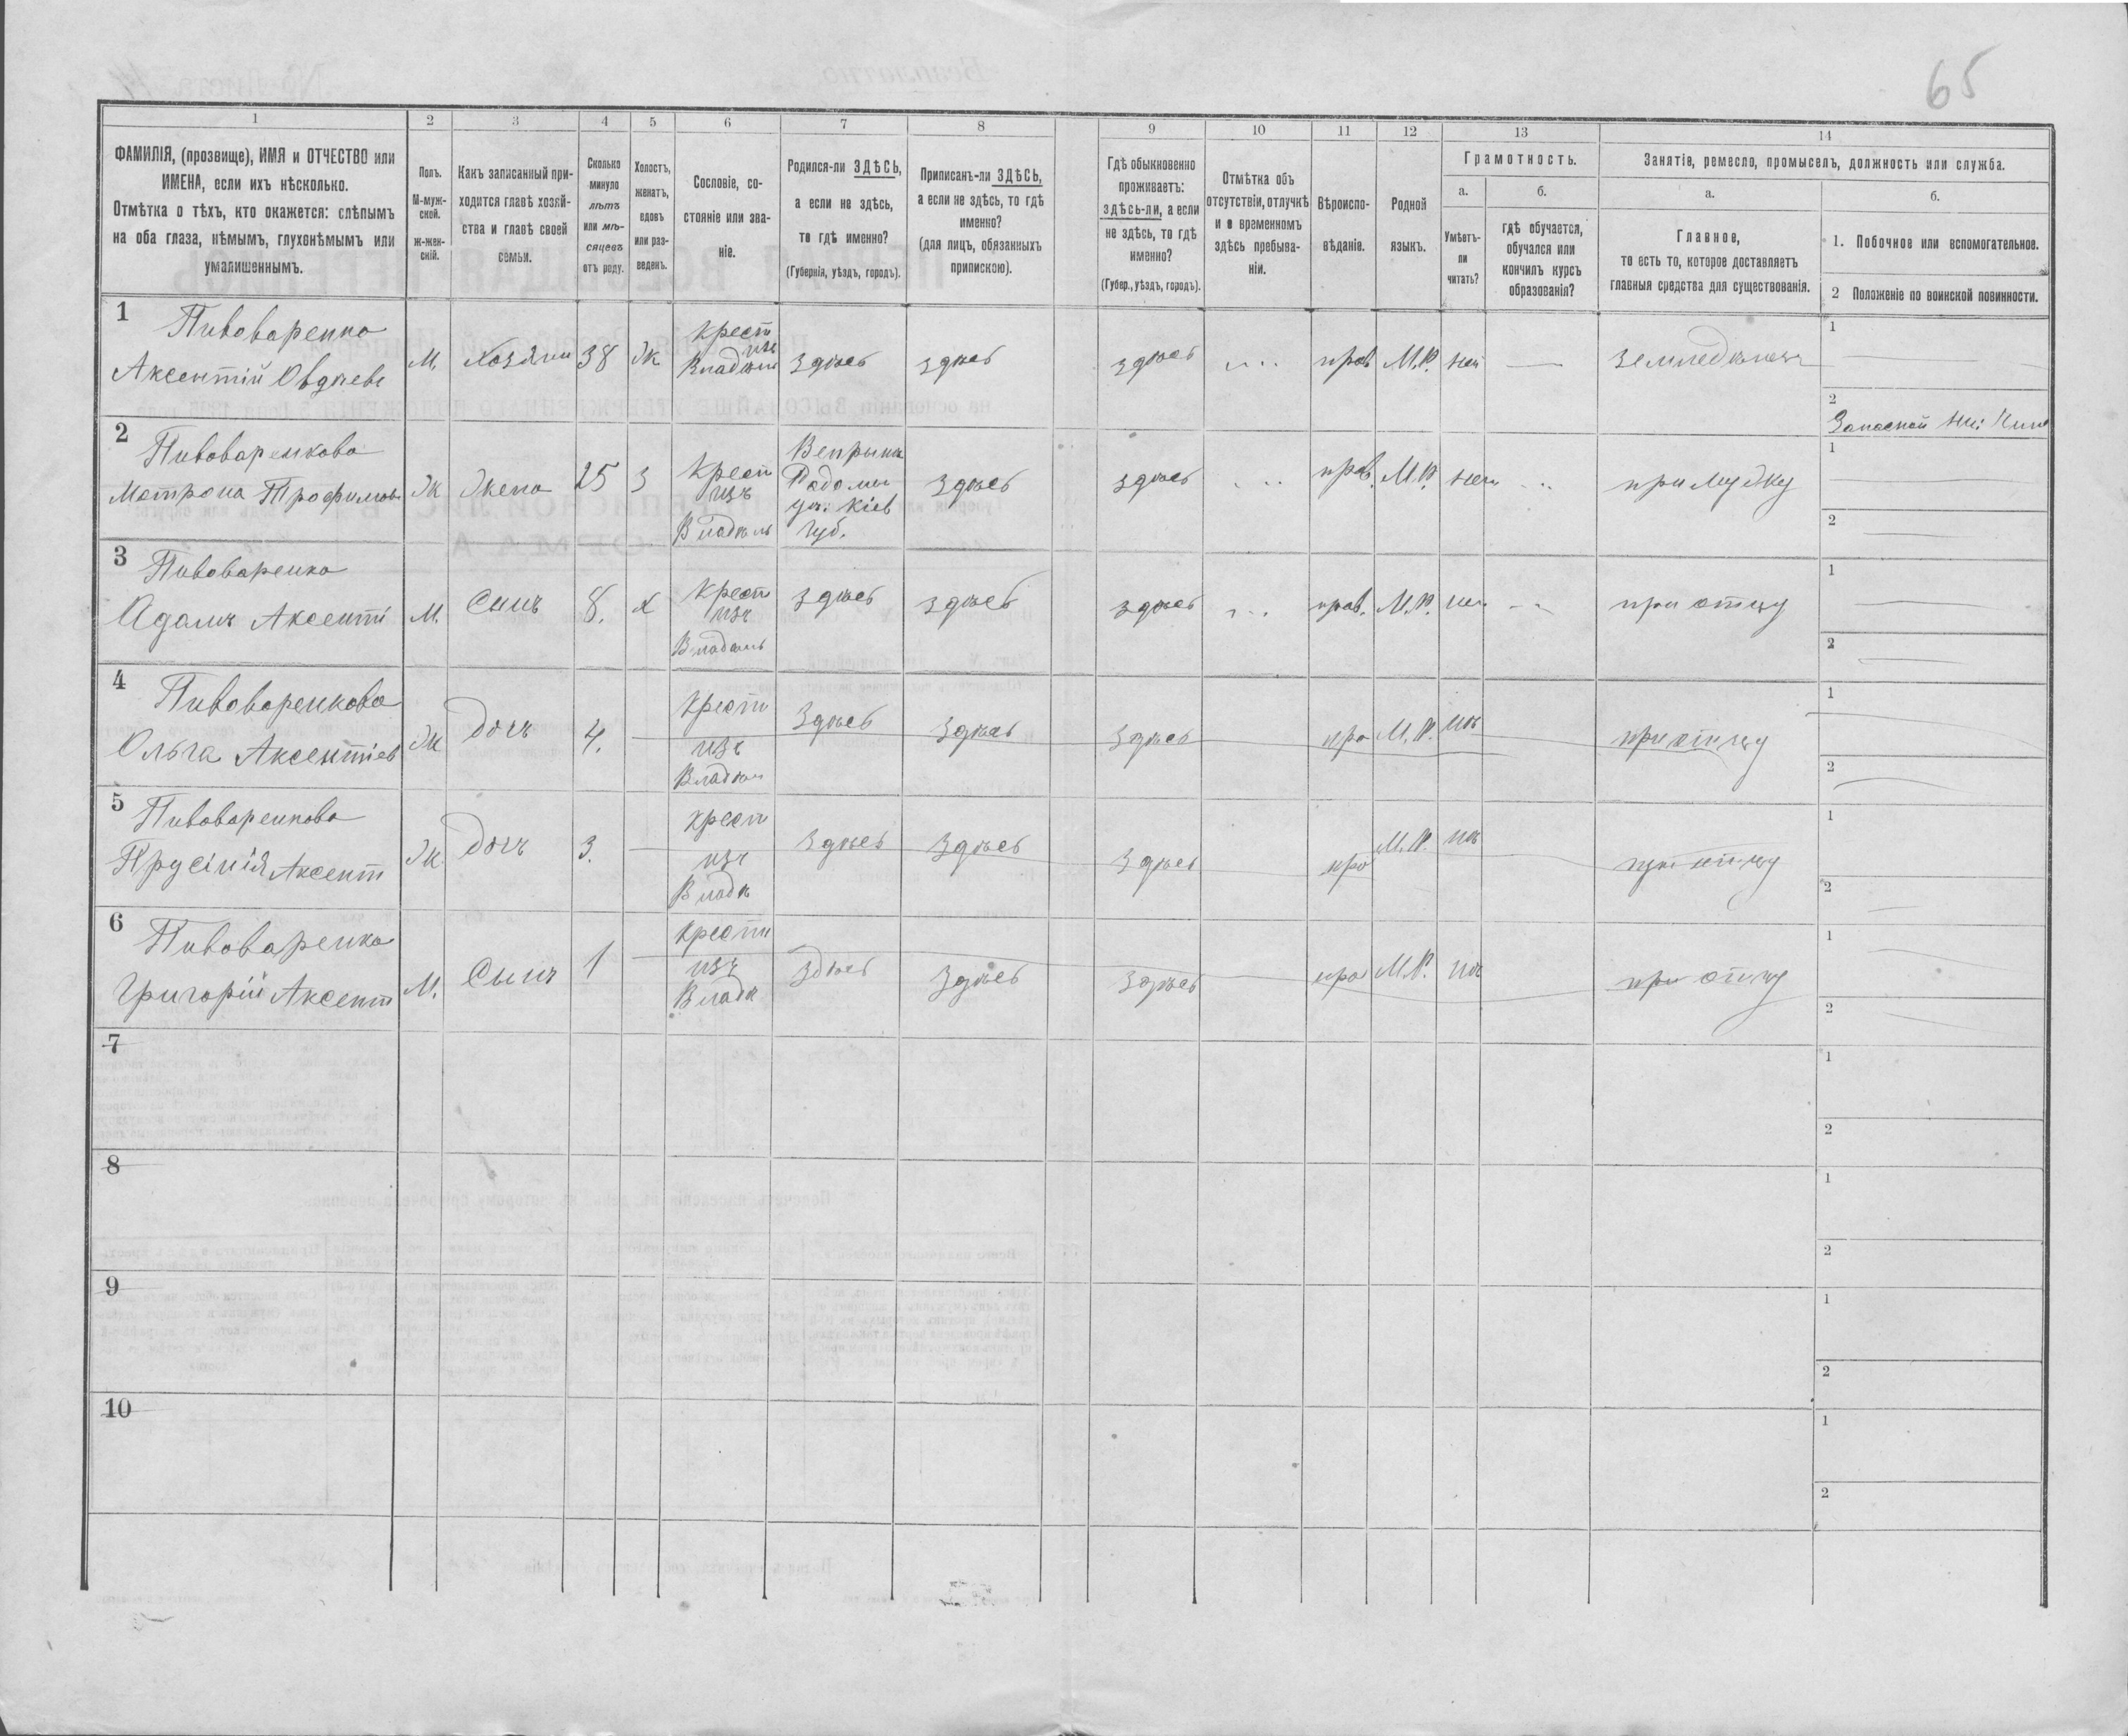 65
1 2 3 4 5 6 7 8 9 10 11 12 13 14
ФАМИЛІЯ, (прозвище), ИМЯ и ОТЧЕСТВО или
ИМЕНА, если ихъ нѣсколько.
Отмѣтка о тѣхъ, кто окажется: слѣпымъ
на оба глаза, нѣмымъ, глухонѣмымъ или
умалишеннымъ.
Полъ.
М-муж-
ской.
ж-жен-
скій.
Какъ записанный при-
ходится главѣ хозяй-
ства и главѣ своей
семьи.
Сколько
минуло
лѣтъ
или мѣ-
сяцевъ
отъ роду.
Холостъ,
женатъ,
вдовъ
или раз-
веденъ.
Сословіе, со-
стояніе или зва-
ніе.
Родился-ли ЗДѢСЬ,
а если не здѣсь,
то гдѣ именно?
(Губернія, уѣздъ, городъ).
Приписанъ-ли ЗДѢСЬ,
а если не здѣсь, то гдѣ
именно?
(для лицъ, обязанныхъ
припискою).
Гдѣ обыкновенно
проживаетъ:
здѣсь-ли, а если
не здѣсь, то гдѣ
именно?
(Губер., уѣздъ, городъ).
Отмѣтка объ
отсутствіи, отлучкѣ
и о временномъ
здѣсь пребыва-
ніи.
Вѣроиспо-
вѣданіе.
Родной
языкъ.
Грамотность.
а.
Умѣетъ-
ли
читать?
б.
гдѣ обучается,
обучался или
кончилъ курсъ
образованія?
Занятіе, ремесло, промыселъ, должность или служба.
а.
Главное,
то есть то, которое доставляетъ
главныя средства для существованія.
б.
1. Побочное или вспомогательное.
2 Положеніе по воинской повинности.
1
Пивоваренко
Аксентій Овдѣевъ
М. Хозяин 38 Ж
Крест
изъ
Владѣль
здѣсь здѣсь здѣсь прав М.Р. нет землѣделецъ
1
2
Запасной
2
Пивоваренкова
Матрона Трофимов
Ж Жена 25 З
Крест
изъ
Владѣль
Вепрынь
Радомы
уѣ. Кіев
губ.
здѣсь здѣсь прав. М.Р. нет при мужу
1
2
3
Пивоваренко
Адамъ Аксенті
М. Сынъ 8. Х
Крест
изъ
Владѣль
здѣсь здѣсь здѣсь прав. М.Р. при отцу
1
2
4
Пивоваренкова
Ольга Аксентіев
Ж дочъ 4.
Крест
изъ
Владѣл
здѣсь здѣсь здѣсь пра М.Р. при отцу
1
2
5
Пивоваренкова
Прусінія Аксент
Ж дочъ 3.
Крест
изъ
Владѣ
здѣсь здѣсь здѣсь пра М.Р. при отцу
1
2
6
Пивоваренко
Григорій Аксент
М. Сынъ 1
Крест
изъ
Владѣ
здѣсь здѣсь здѣсь пра М.Р. при отцу
1
2
7
1
2
8
1
2
9
1
2
10
1
2